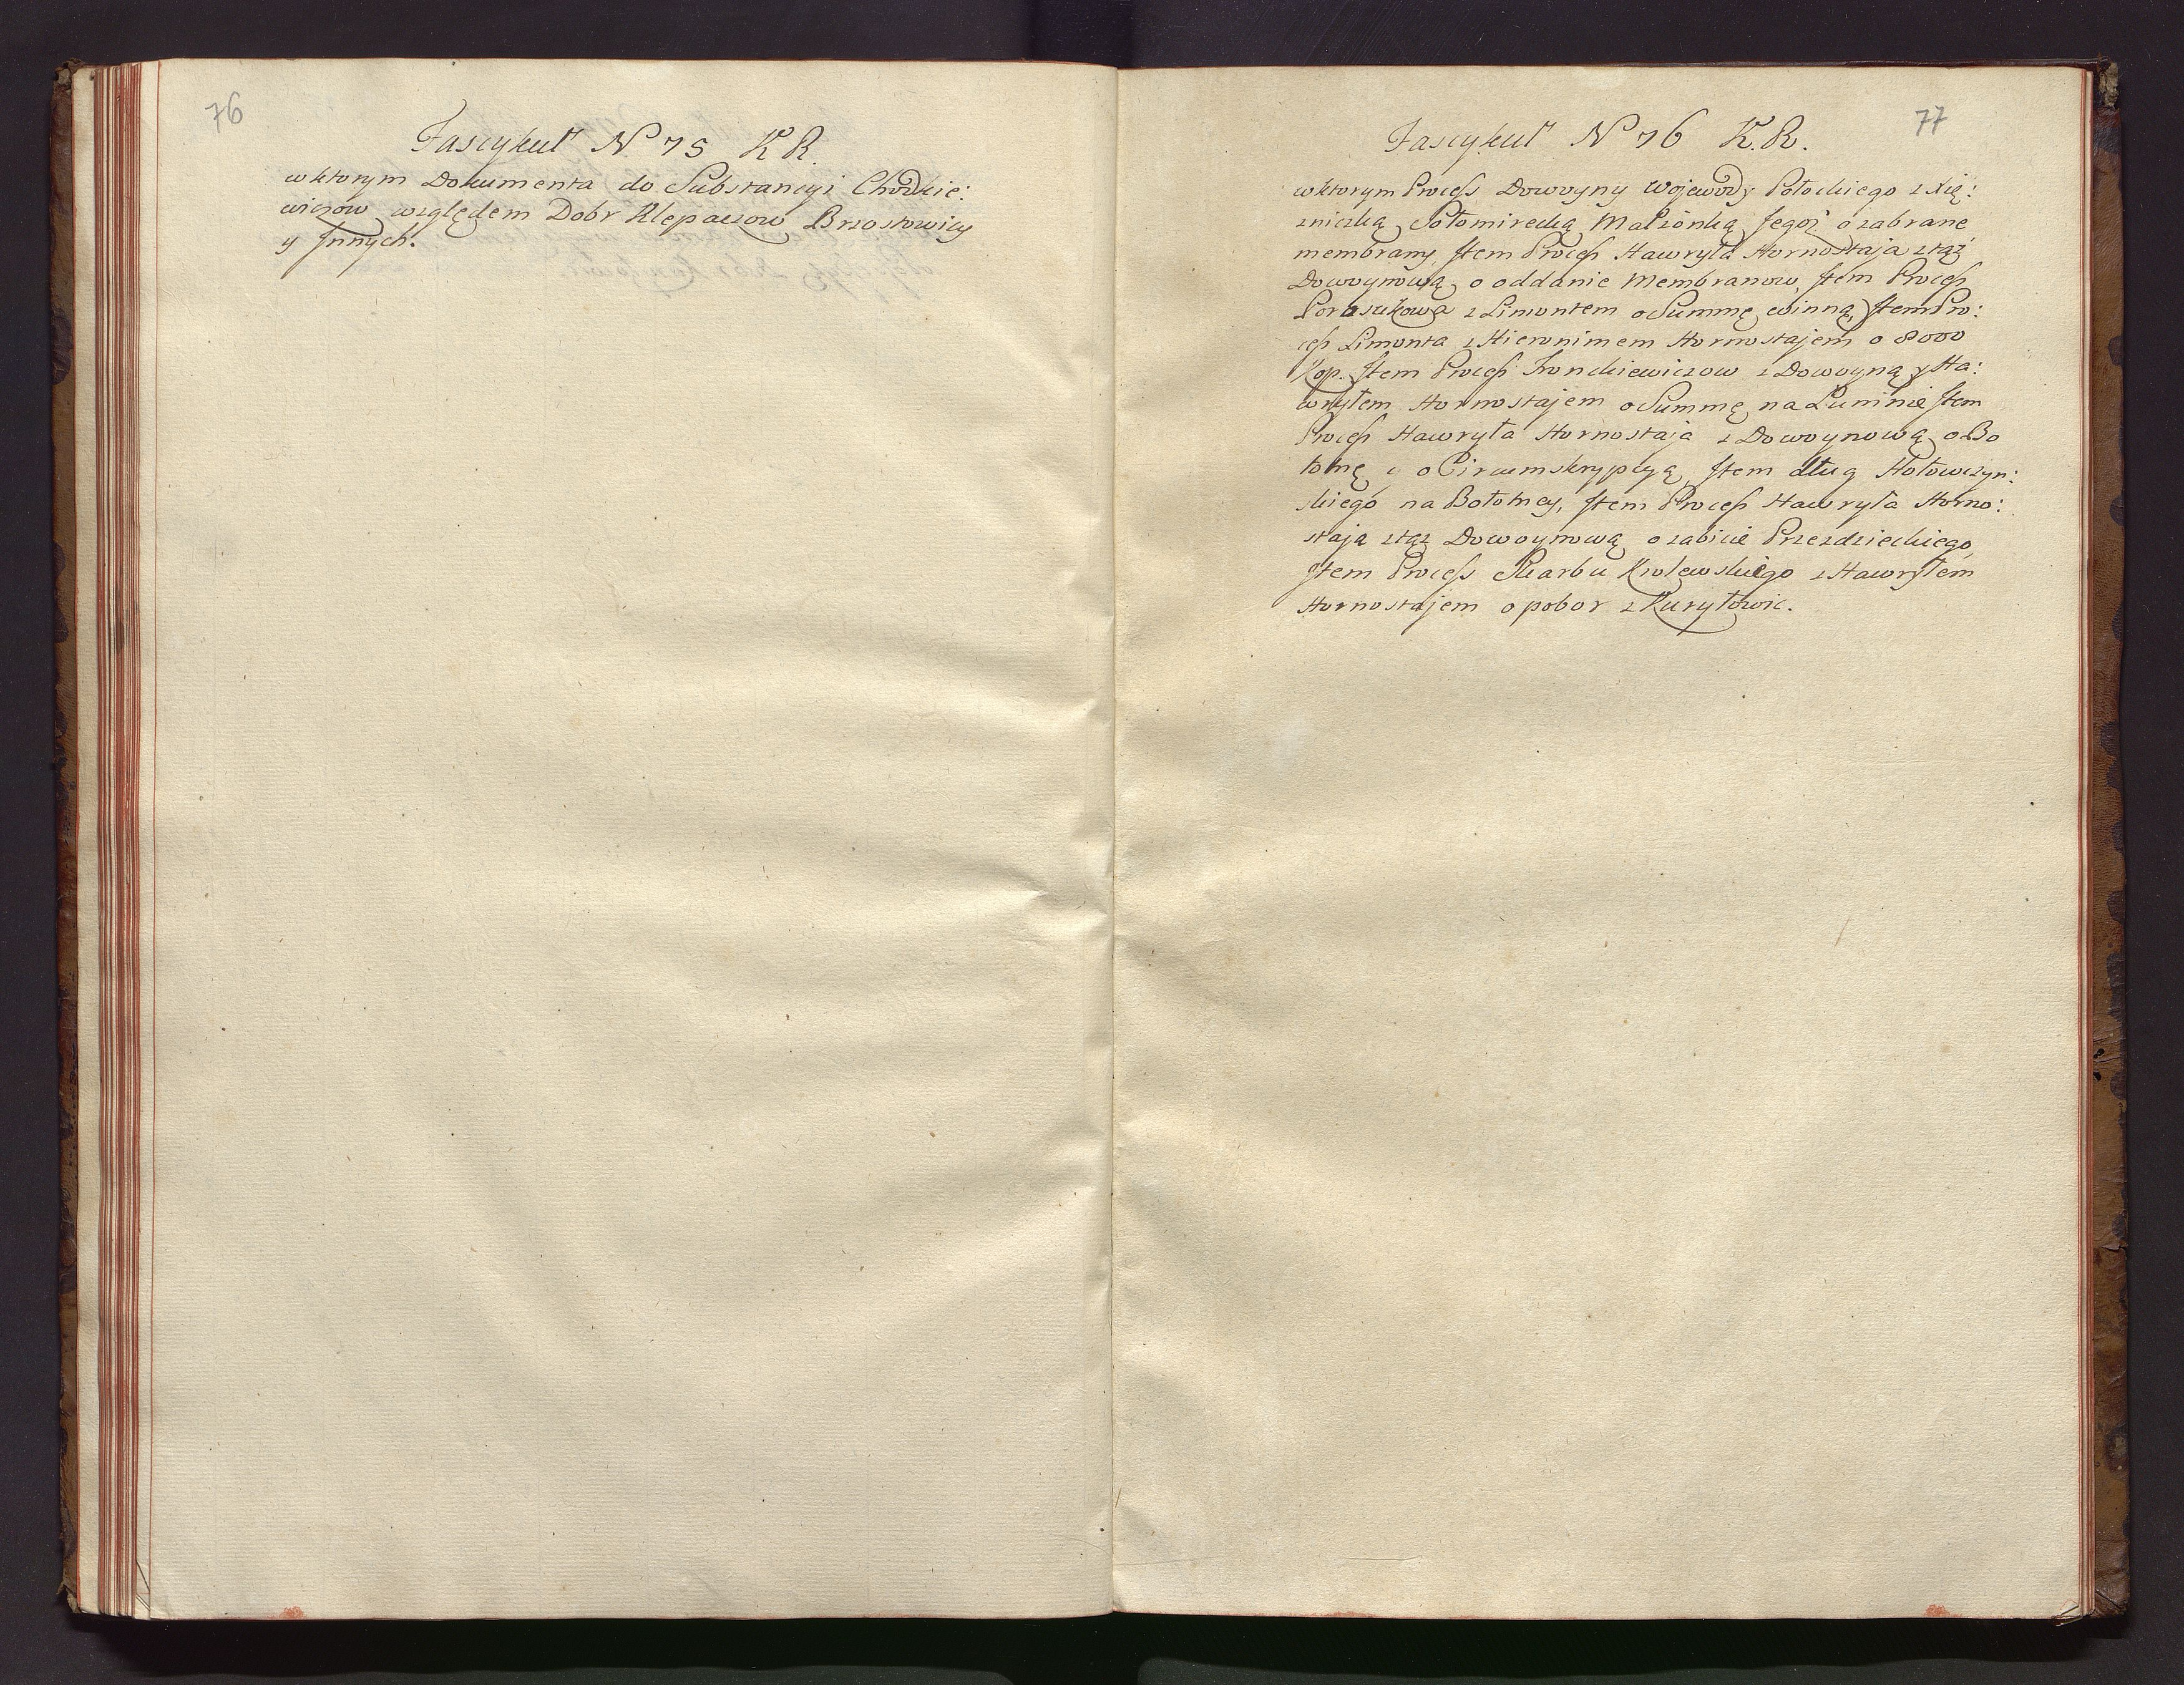 76
Fascykuł N 75 K R.
w ktorym Dokumenta do Substancyi Chodkie:
wiczow względem Dobr Klepaczow Brzostowicy
y Jnnych.
77
Fascykuł N 76 K. R.
w ktorym Process Dowoyny Wojewody Połockiego z Xię:
zniczką Sołomirecką Małżonką Jegoż o zabrane
membrany, Jtem Process Hawryła Hornostaja z tąż
Dowoynową o oddanie Membranow, Jtem Process
z Limontem o Summę winną, Jtem Pro:
cess Limonta z Hieronimem Hornostajem o 8000
Kop. Jtem Process z Dowoyną y Ha:
wryłem Hornostajem o Summę na Łuninie Jtem
Process Hawryła Hornostaja z Dowoynową o Bo
łotnę y o Circumskrypcyą, Jtem dług Hołowczyn:
skiego na Bołotney, Jtem Process Hawryła Horno:
staja z tąż Dowoynową o zabicie Przezdzieckiego,
Jtem Process Skarbu Krolewskiego z Hawryłem
Hornostajem o pobor z Kuryłowic.